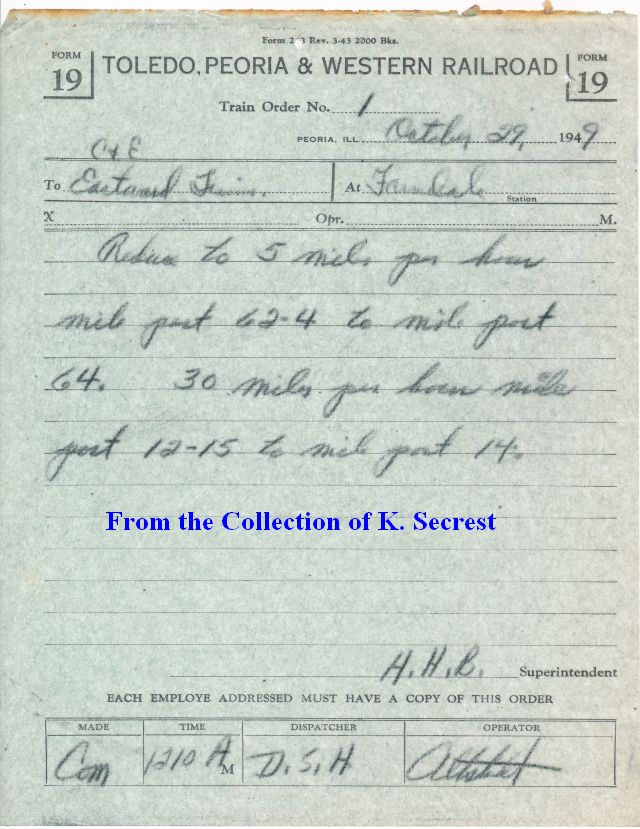 Form 2 3 Rev. 3-43 2000 Bks.
FORM 19
TOLEDO, PEORIA & WESTERN RAILROAD
FORM 19
Train Order No. 1
PEORIA, ILL. October 29, 1949
C+E
To Eastward Trains. At Farmdale
Station
X Opr. M.
Reduce to 5 miles per hour
mile post 62-4 to mile post
64. 30 miles per hour mile
post 12-15 to mile post 14.
From the Collection of K. Secrest
H.H.B. Superintendent
EACH EMPLOYE ADDRESSED MUST HAVE A COPY OF THIS ORDER
MADE TIME DISPATCHER OPERATOR
Com 1210 A M D.S.H